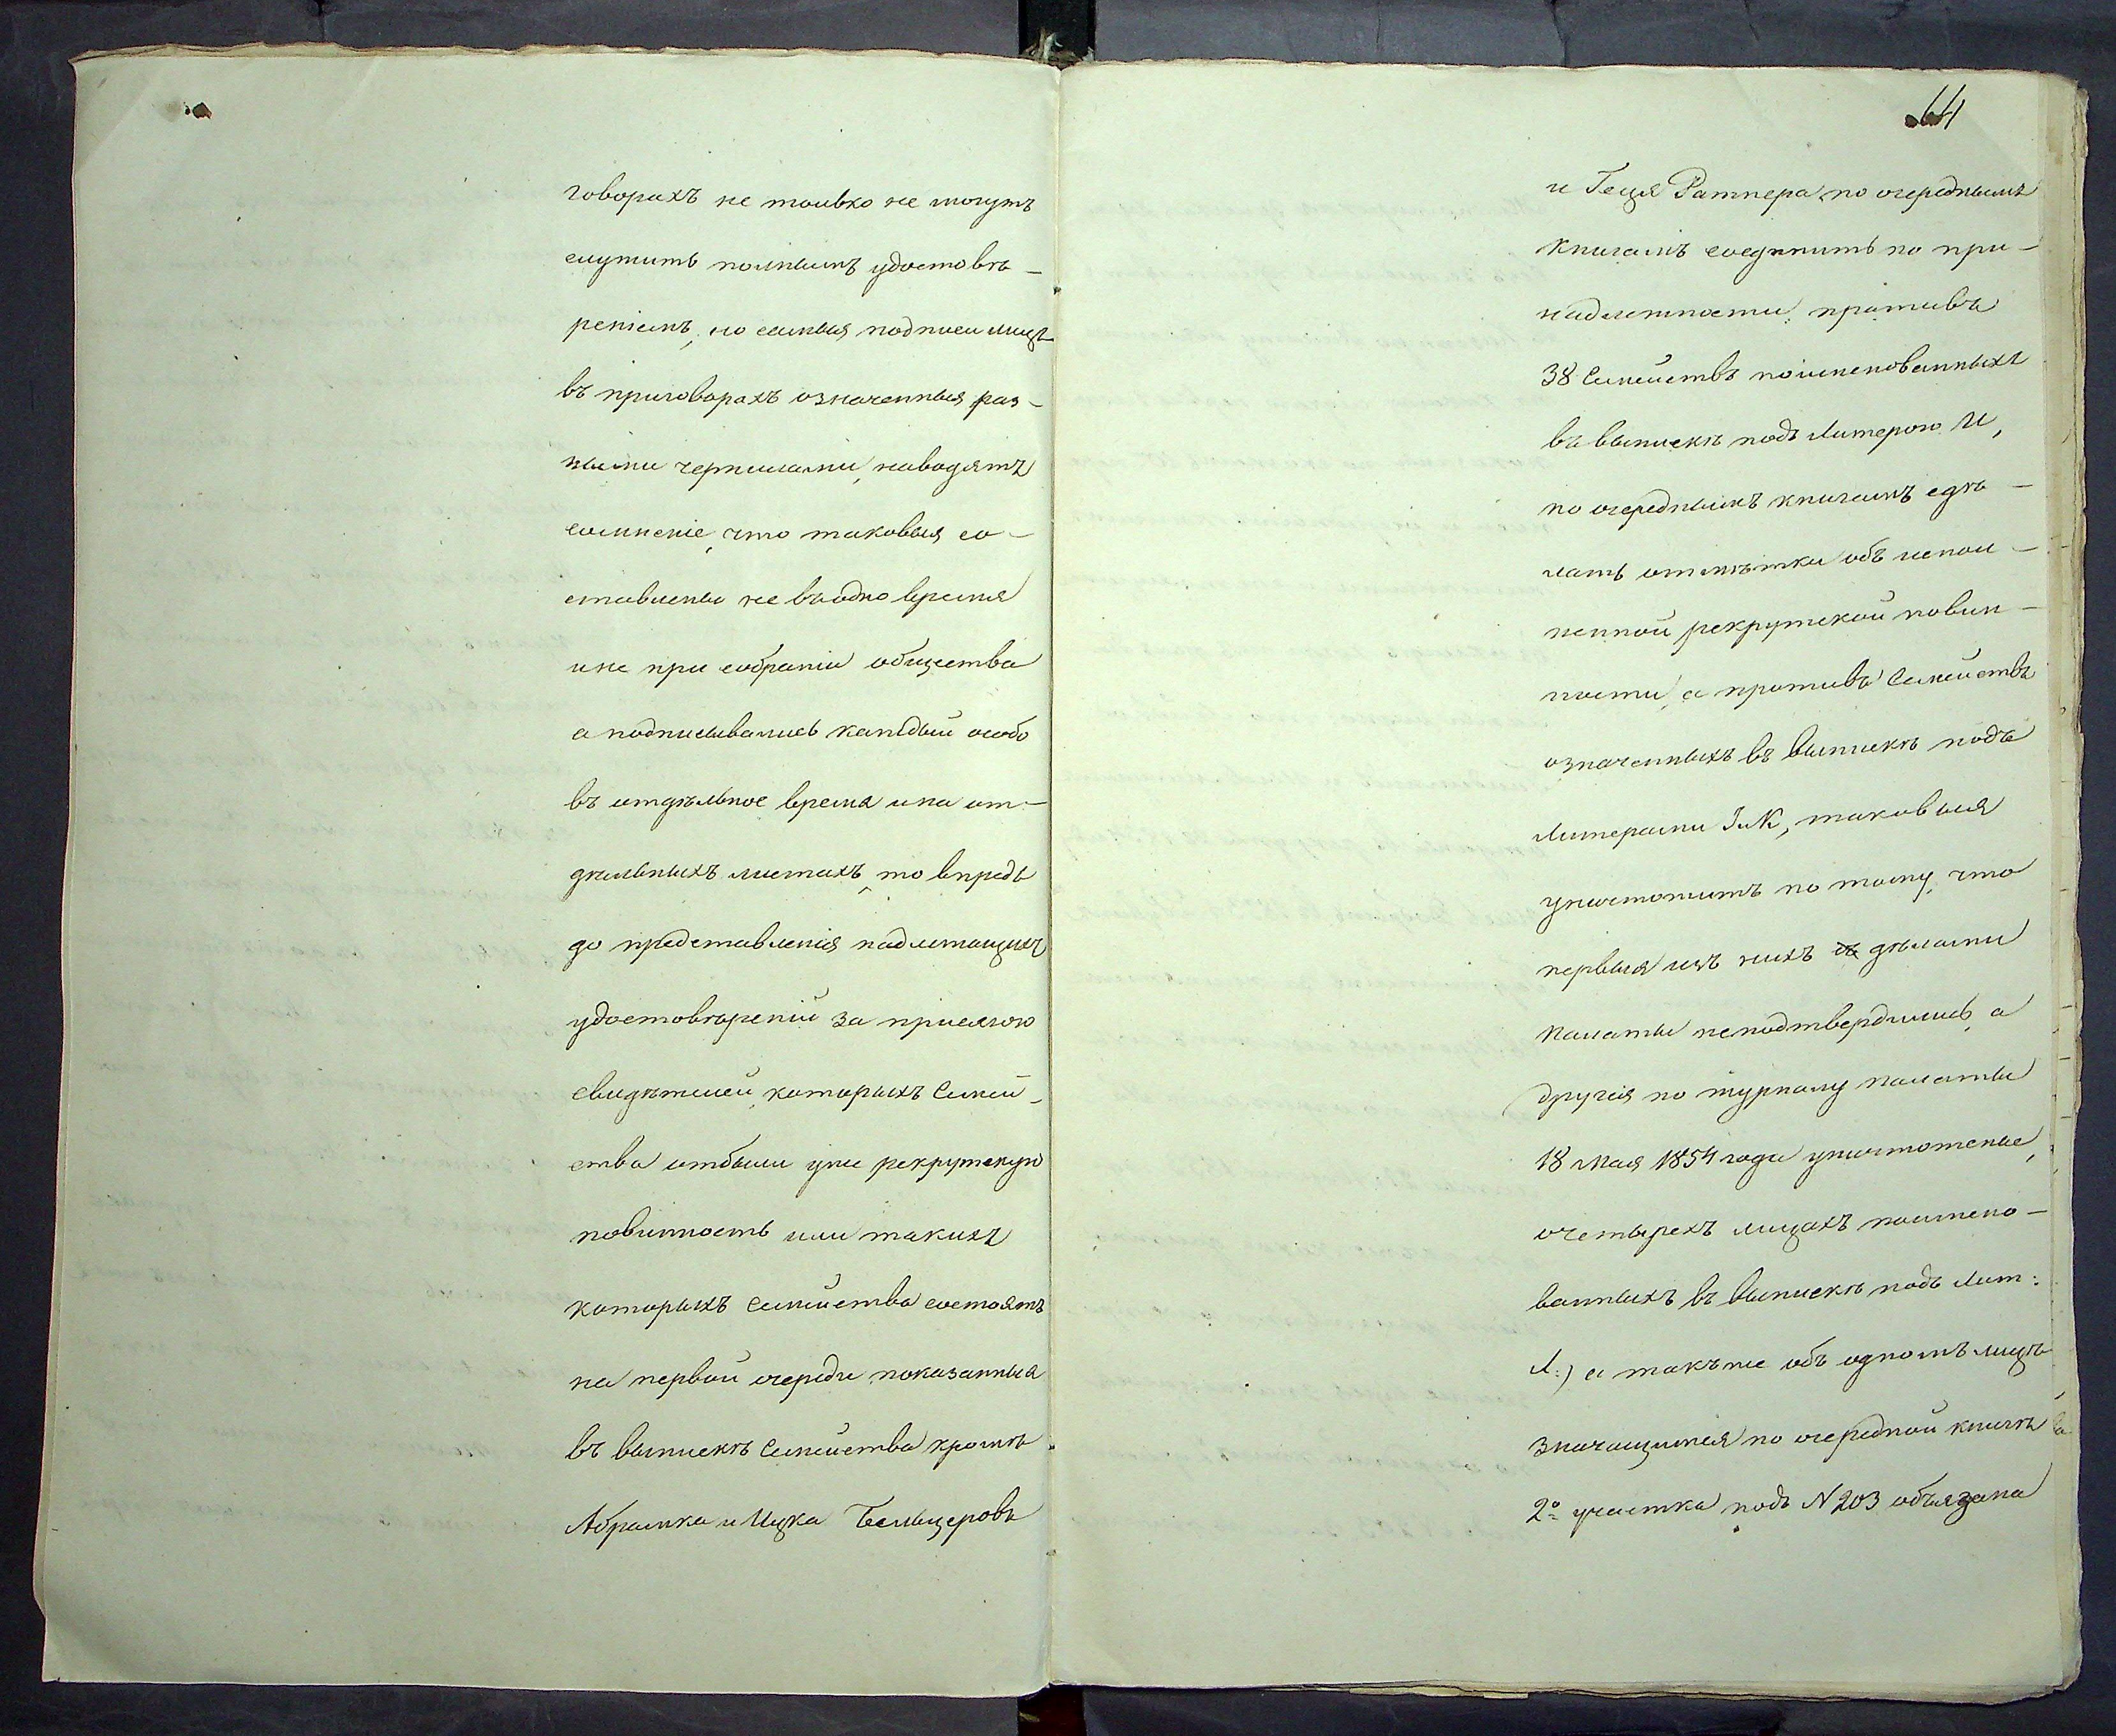 говорахъ не только не могутъ
служить полнымъ удостовѣ-
реніемъ, но самыя подписи лицъ
въ приговорахъ означенныя раз-
ными чернилами, наводятъ
сомнѣніе, что таковыя со-
ставлены не въ одно время
и не при собраніи общества
а подписывались каждый особо
въ отдѣльное время и на от-
дѣльныхъ листахъ, то впредь
до представленія надлежащихъ
удостовѣреній за присягою
свидѣтелей, которыхъ Семей-
ства отбыли уже рекрутскую
повинность или такихъ
которыхъ Семейства состоятъ
на первой очереди показанныя
въ выпискѣ Семейства кромѣ
Абрамка и Ицка Бельцеровъ
64
и Геця Ратнера, по очереднымъ
книгамъ соединить по при-
надлежности, противъ
38 Семействъ поименованныхъ
въ выпискѣ подъ Литерою И,
по очереднымъ книгамъ сдѣ-
лать отмѣтки объ испол-
ненной рекрутской повин-
ности, а противъ Семействъ
означенныхъ въ выпискѣ подъ
Литерами I и К, таковыя
уничтожить по тому, что
первыя изъ нихъ дѣлами
палаты неподтвердились, а
другія по журналу палаты
18 Мая 1854 года уничтожены,
о четырехъ лицахъ поимено-
ванныхъ въ выпискѣ подъ Лит:
Л.) а такъ же объ одномъ лицѣ
значущимся по очередной книгѣ
2º участка подъ N 203 обязана